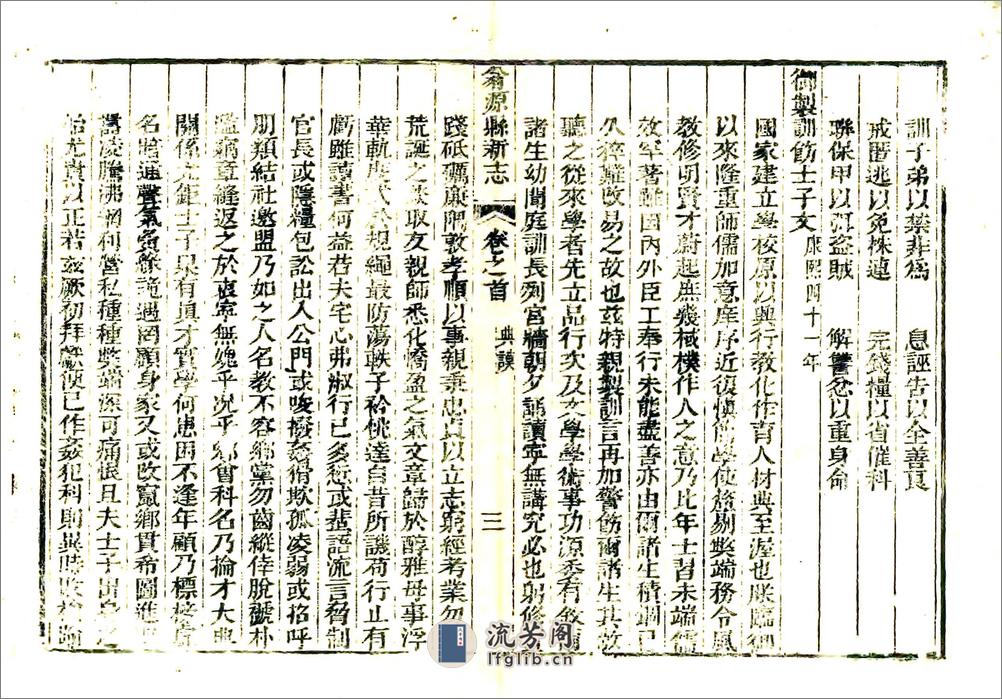 訓子弟以禁非為　息誣告以全善良
戒匿逃以免株連　完錢糧以省催科
聯保甲以弭盜賊　解讐忿以重身命
御製訓飭士子文 康熙四十一年
國家建立學校原以興行教化作育人材典至渥也朕臨御
以來隆重師儒加意庠序近復慎簡學使釐剔獘端務令風
教修明賢才蔚起庶幾棫樸作人之意乃比年士習未端儒
效罕著雖因內外臣工奉行未能盡善亦由爾諸生積錮已
久猝難改易之故也茲特親製訓言再加警飭爾諸生其敬
聽之從來學者先立品行次及文學學術事功源委有敘爾
諸生幼聞庭訓長列宮牆朝夕誦讀寧無講究必也躬修
翁源縣新志 卷之首 典謨 三
踐砥礪廉隅敦孝順以事親秉忠貞以立志窮經考業勿
荒誕之談取友親師悉化憍盈之氣文章歸於醇雅毋事浮
華軌度式於規繩最防蕩軼子衿佻達自昔所譏苟行止有
虧雖讀書何益若夫宅心弗淑行已多愆或蜚語流言脅制
官長或隱糧包訟出入公門或唆撥姦猾欺孤凌弱或招呼
朋類結社邀盟乃如之人名教不容鄉黨勿齒縱倖脫褫朴
濫竊章縫返之於衷寧無媿乎況乎鄉會科名乃掄才大典
關係尤鉅士子果有真才實學何患困不逢年顧乃標榜虛
名暗通聲氣夤緣詭遇罔顧身家又或改竄鄉貫希圖進
囂凌騰沸網利營私種種獘端深可痛恨且夫士子出身之
始尤貴以正若茲厥初拜獻便已作姦犯科則異時敗檢踰
流芳阁
lfglib.cn